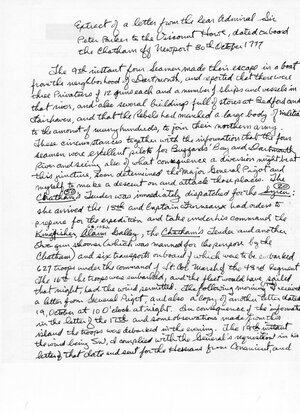 Extract of a letter from the Rear Admiral Sir
Peter Parker to the Viscount Howe, dated on board
the Chatham off Newport 30th October 1777
The 9th instant four seamen made their escape in a boat
from the neighborhood of Dartmouth, and reported that there were
three Privateers of 12 guns each and a number of ships and vessels in
that river, and also several buildings full of stores at Bedford and
Fairhaven, and that the Rebels had marched a large body of Militia
to the amount of many hundreds, to join their northern army.
These circumstances together with the information that the four
seamen were excellent pilots for Buzzards Bay and Dartmouth
River and seeing also of what consequence a diversion might be at
this juncture, soon determined the Major General Pigot and
myself to make a descent on and attack those places. The
Chatham's Tender was immediately dispatched for the
she arrived the 15th and Captain Furneaux had orders to
prepare for the expedition, and take under his command the
Kingfisher, Alarm Galley, the Chatham's Tender and another
five gun schooner (which was manned for the purpose by the
Chatham) and six transports on board of which was to be embarked
627 troops under the command of Lt Col Marsh of the 43rd Regiment.
The 16th the troops were embarked, and the fleet would have sailed
that night, had the wind permitted. The following morning I received
a letter from General Pigot, and also a copy of another letter dated
19 October at 10 O'clock at night. In consequence of the information
in the letter of the 17th and some observations made from this
island the troops were debarked in the evening. The 19th instant
the wind being SW, I complied with the General's requisition in his
letter of that date and sent for the Hessians from Conanicut, and